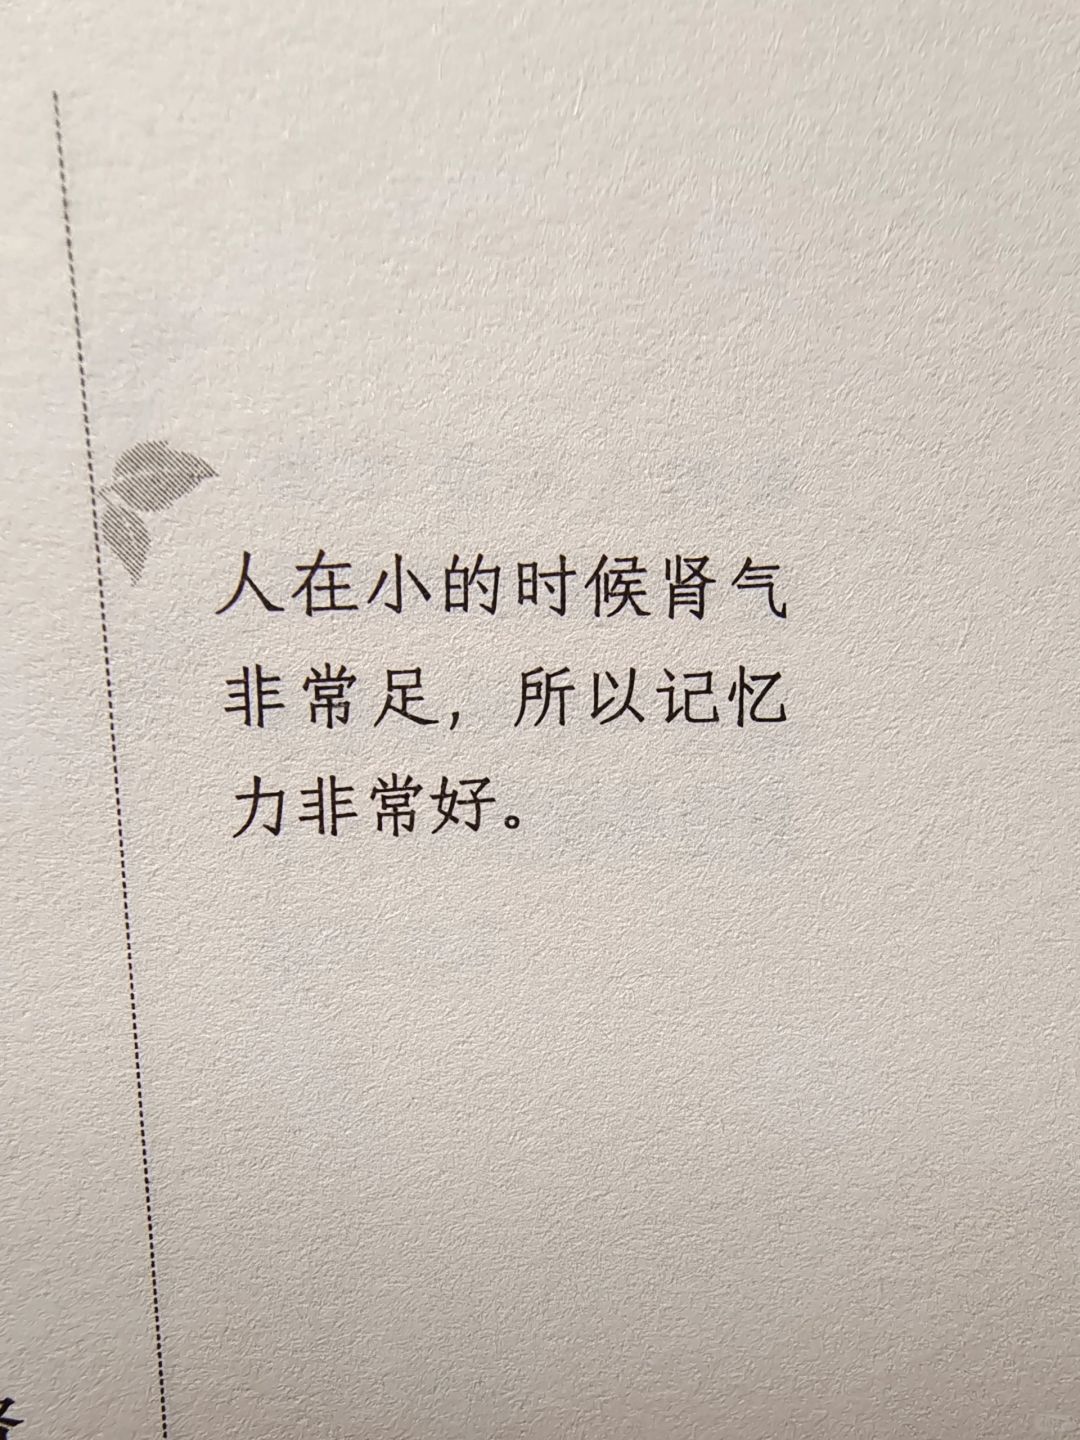 人在小的时候肾气
非常足，所以记忆
力非常好。